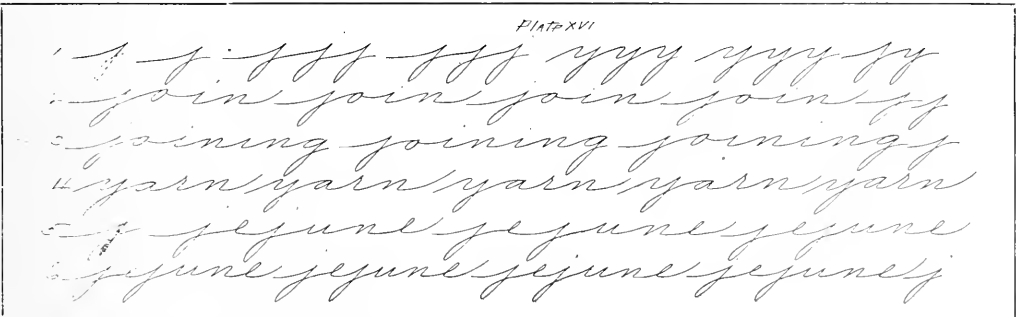 Plate XVI
1 j j jjj jjj yyy yyy jy
2 join join join join jj
3 joining joining joining j
4 yarn yarn yarn yarn yarn
5 j jejune jejune jejune
6 jejune jejune jejune jejune j